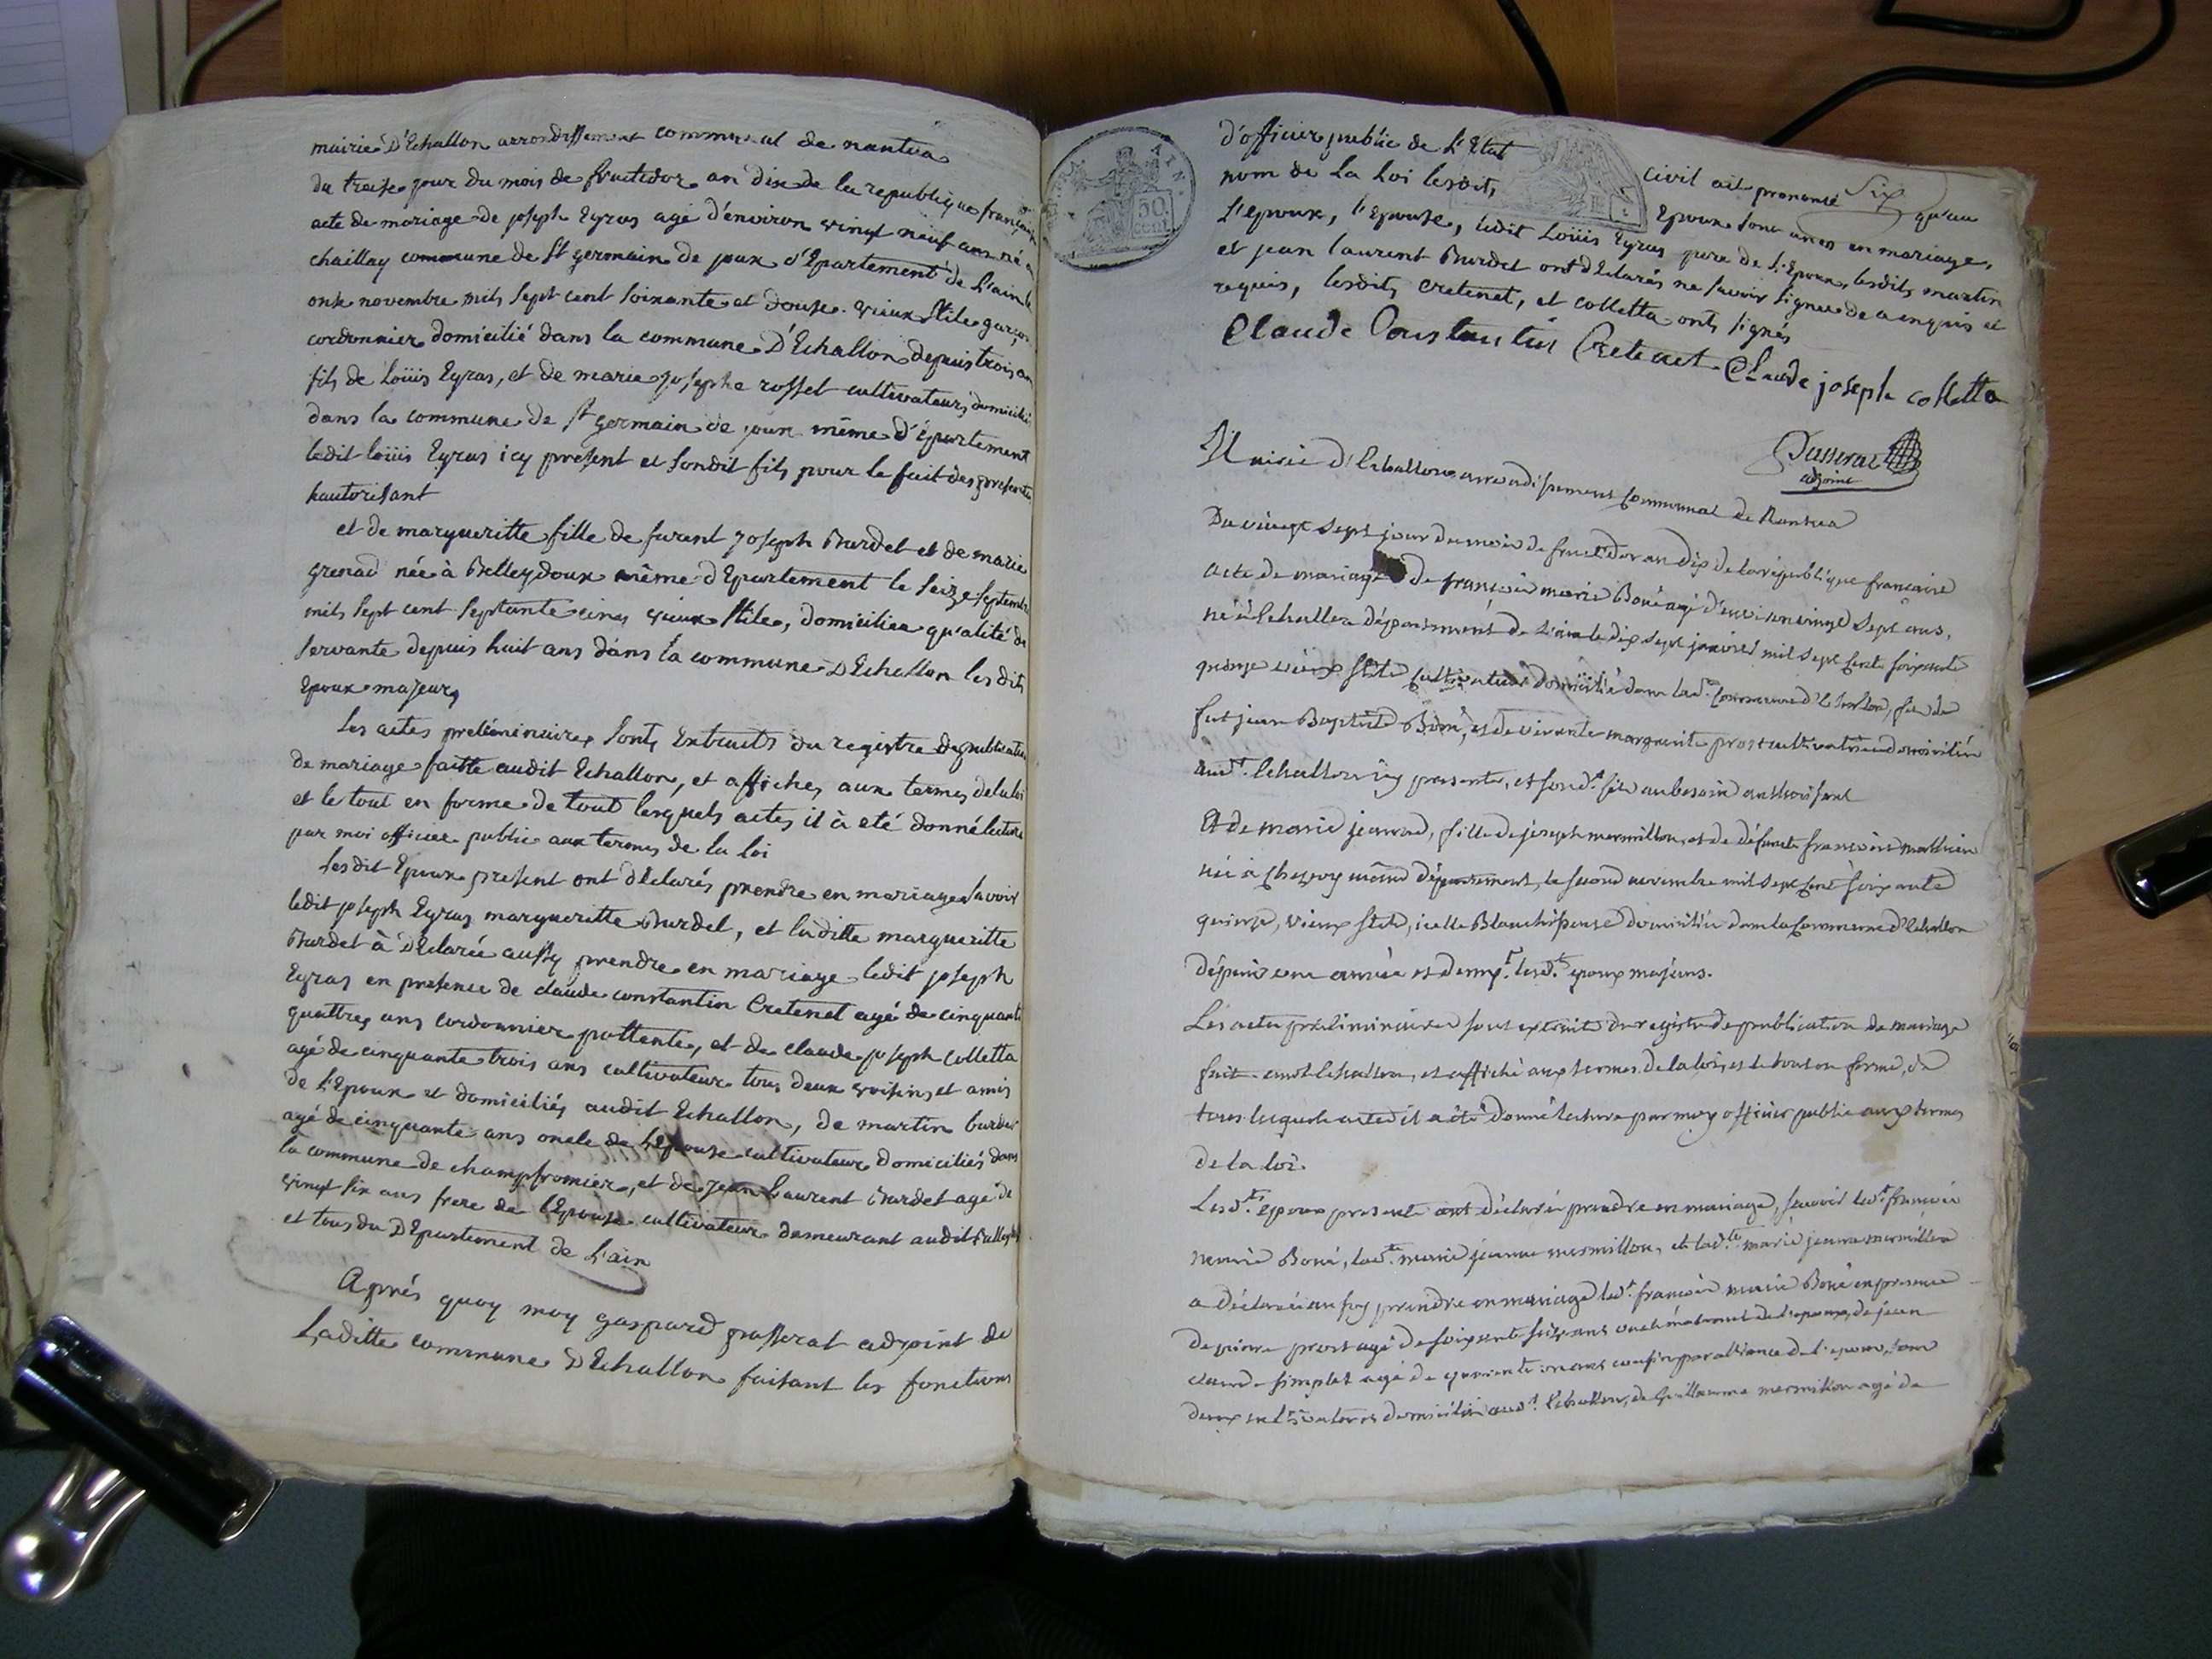 mairie D'Echallon arrondissement communal de nantua
du treise jour du mois de fructidor an dix de la republique française
acte de mariage de joseph Egras agé d'environ vingt neuf ans né a
chaillay commune de St germain de joux d'Epartement de L'ain le
onse novembre mils sept cent soixante et douse. vieux stile garçon
cordonnier domicilié dans la commune D'Echallon depuis trois an
fils de Loüis Egras, et de marie josephe rosset cultivateurs domiciliés
dans la commune de st germain de joux même d'épartement
ledit loüis Egras icy present et sondit fils pour le fait des presentes
hautorisant
et de margueritte fille de furent joseph Burdet et de marie
grenad née à Belleydoux même d'Epartement le seize septembre
mils sept cent septante cinq vieux stile, domiciliée qu'alité de
servante depuis huit ans dans la commune D'Echallon lesdits
Epoux majeurs
Les actes preliminaires sonts Extraits du registre de publication
de mariage faitte audit Echallon, et affiches aux termes de la loi
et le tout en forme de tout lesquels actes il à eté donné lecture
par moi officier public aux termes de la loi
Lesdit Epoux present ont déclarés prendre en mariage savoir
ledit joseph Egras margueritte Burdet, et laditte margueritte
Burdet à déclarée aussy prendre en mariage ledit joseph
Egras en presence de claude constantin Cretenet agé de cinquante
quattres ans cordonnier pattente, et de claude joseph Colletta
agé de cinquante trois ans cultivateur tous deux voisins et amis
de L'Epoux et domiciliés audit Echallon, de martin burdet
agé de cinquante ans oncle de L'Epouse cultivateur domiciliés dans
la commune de champfromier, et de jean Laurent Burdet agé de
vingt six ans frere de l'Epouse cultivateur demeurant audit Belleydoux
et tous du D'Epartement de L'ain
Aprés quoy moy gaspard passerat adjoint de
Laditte commune D'Echallon faisant les fonctions
d'officier public de L'Etat civil ait prononcé Six qu'au
nom de La Loi lesdits Epoux sont unes en mariage,
L'epoux, l'Epouse, ledit Loüis Egras pere de L'Epoux, lesdits martin
et jean laurent Burdet ont déclarés ne savoir signer de a enquis et
requis, lesdits Cretenet, et colletta onts signés
Claude Constantin Cretenet Claude joseph colletta
Passerat
adjoint
Mairie d'Echallon arrondissement Communal de Nantua
Du vingt sept jour du mois de fructidor an dix de la république francaise
acte de mariage de françois marie Boné agé d'environ vingt sept ans,
né à Echallon département de l'ain le dix sept janvier mil sept cent soixante
quinze vieux stile cultivateur domicilié dans lad.e Commune d'Echallon, fils de
fut jean Baptiste Boné, et de vivante marguerite prost cultivatrice domiciliée
aud.t Echallon icy presente, et sond.t fils au besoin authorisant
Et de marie jeanne, fille de joseph mermillon, et de défunte françoise mathieu
née à Chezery même département, le second novembre mil sept cent soixante
quinze, vieux stile, icelle Blanchisseuse domiciliée dans la Commune d'Echallon
dépuis une année et demy. lesd.ts epoux majeurs.
Les actes préliminaires sont extraits du registre de publication de mariage
fait aud.t Echallon, et affiché aux termes de la loi, et le tout en forme, de
tous lesquels actes il a été donné lecture par moy officier public aux termes
de la loi.
Lesd.ts epoux presents ont déclaré prendre en mariage, savoir led.t françois
marie Boné, lad.te marie jeanne mermillon, et lad.te marie jeanne mermillon
a déclaré aussy prendre en mariage led.t françois marie Boné en presence
de pierre prost agé de soixante six ans oncle maternel de l'epoux, de jean
claude simplet agé de quarante un ans cousin par alliance de l'epoux, tous
deux cultivateurs domiciliés aud.t Echallon, de Guillaume mermillon agé de